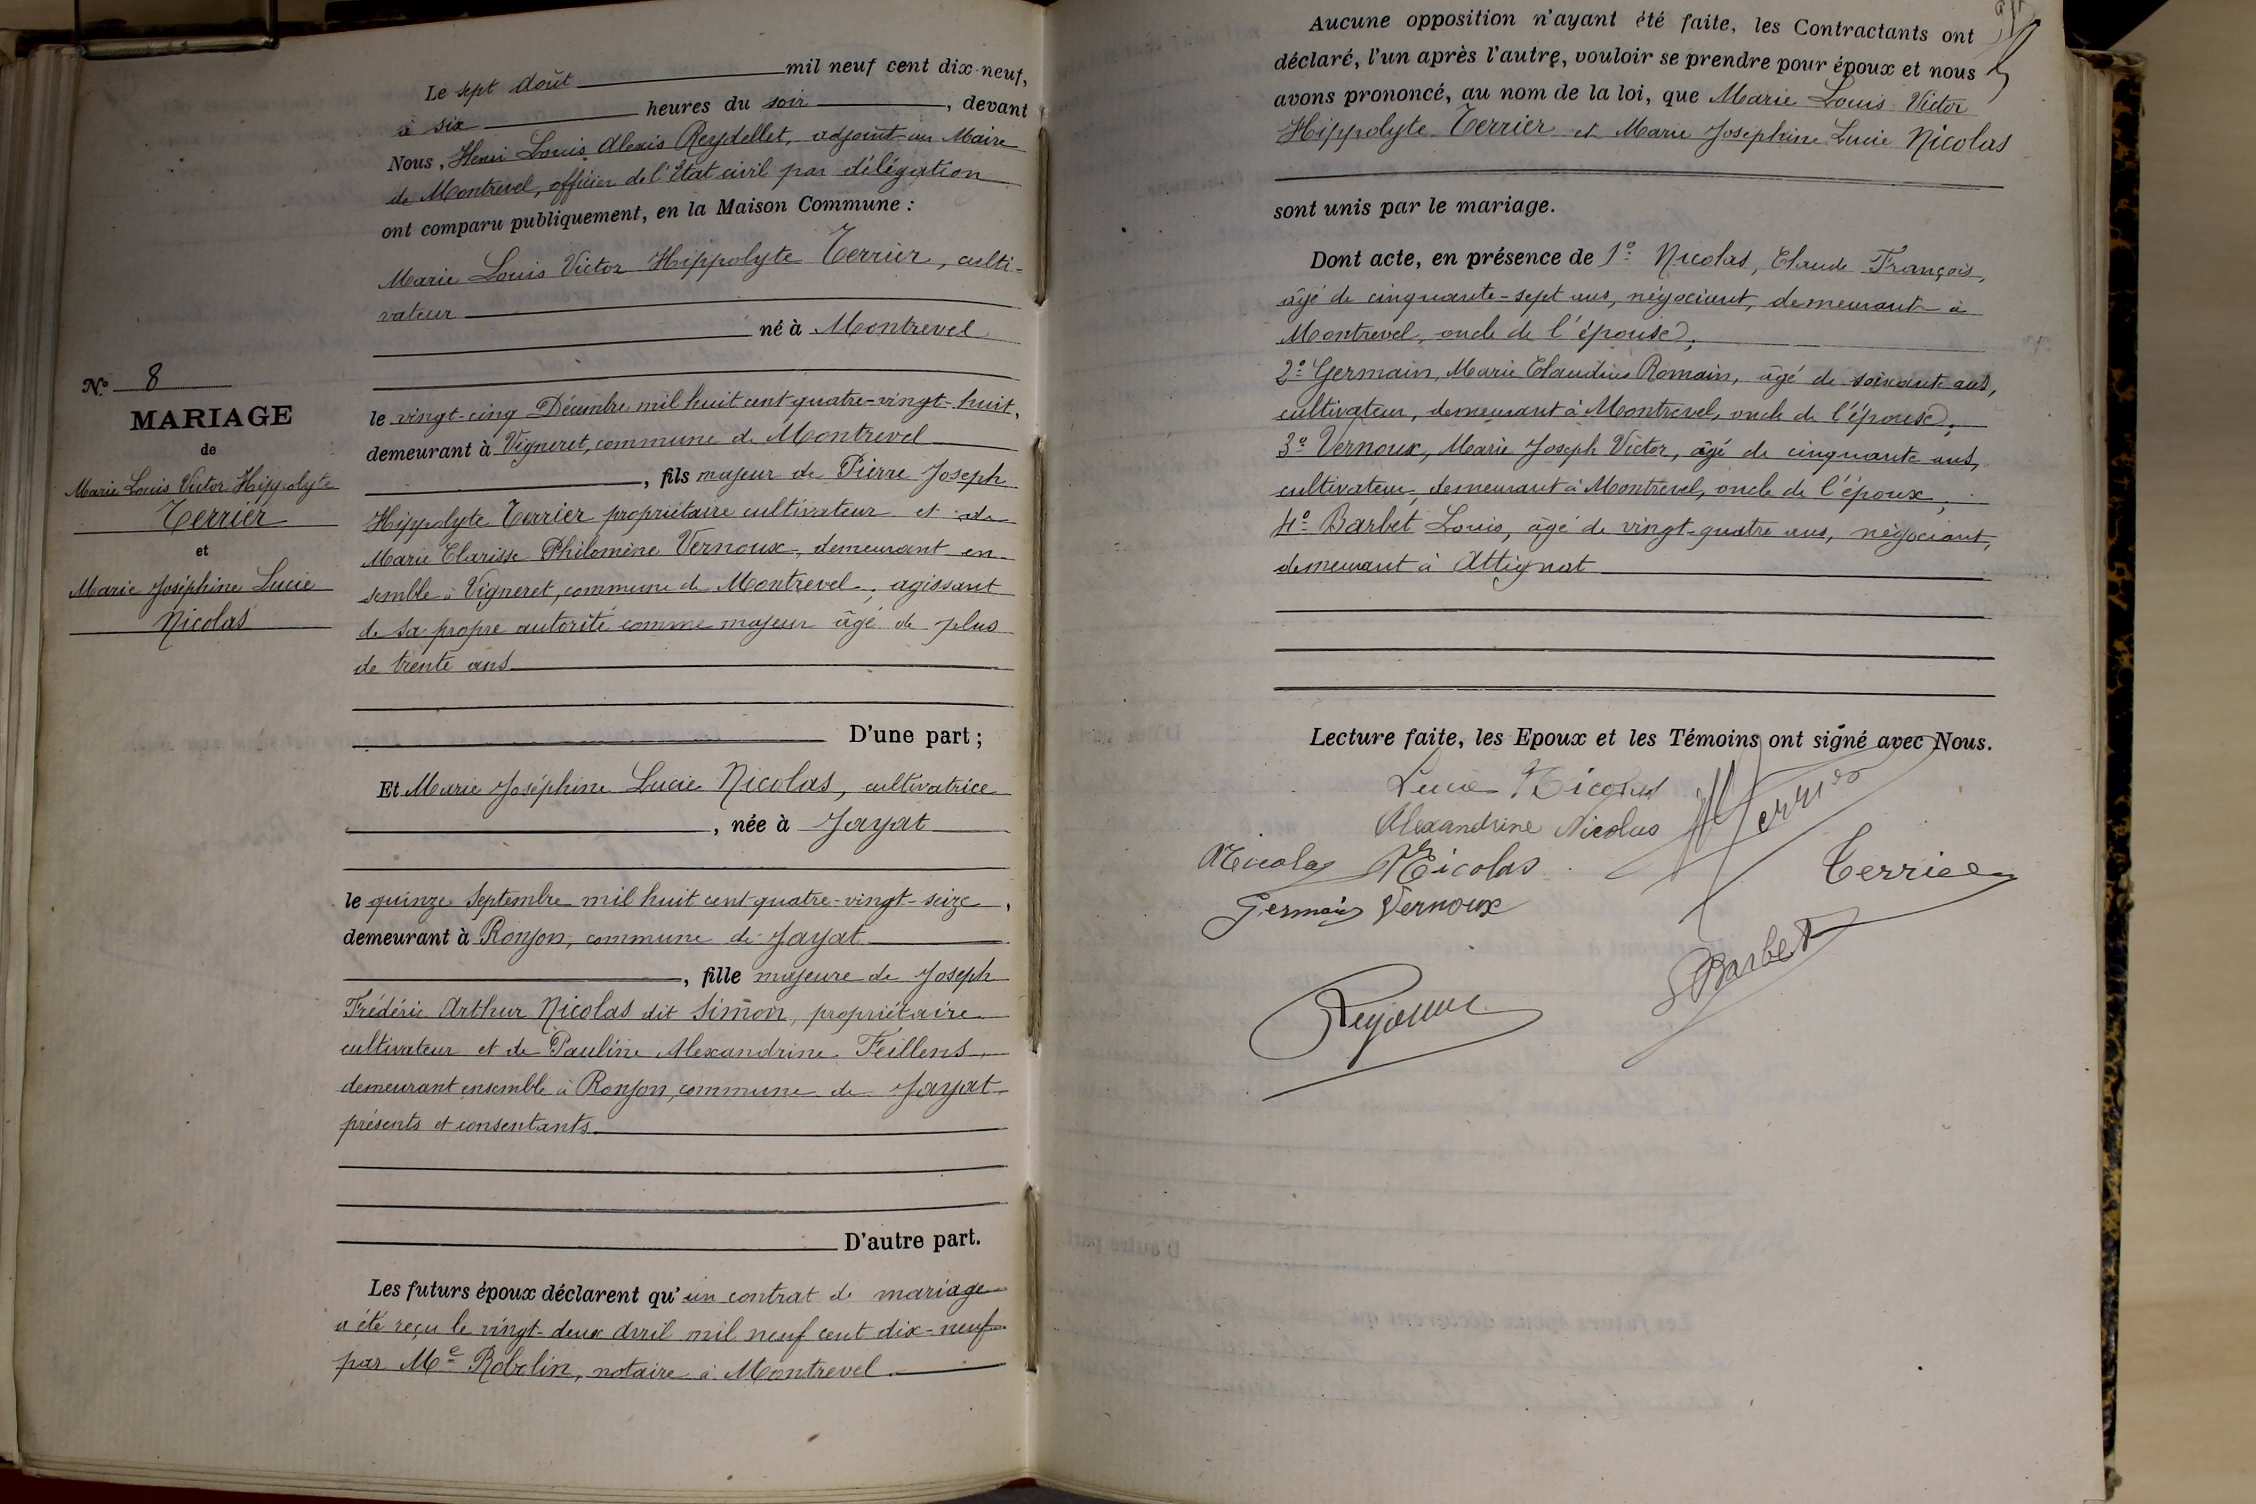 Le sept Août mil neuf cent dix-neuf,
à six heures du soir, devant
Nous, Henri Louis Alexis Reydellet, adjoint au Maire
de Montrevel, officier de l'Etat civil par délégation
ont comparu publiquement, en la Maison Commune :
Marie Louis Victor Hippolyte Terrier, culti-
vateur
né à Montrevel
le vingt-cinq Décembre mil huit cent quatre-vingt-huit,
demeurant à Vigneret, commune de Montrevel
, fils majeur de Pierre Joseph
Hippolyte Terrier propriétaire cultivateur et de
Marie Clarisse Philomène Vernoux, demeurant en-
semble à Vigneret, commune de Montrevel, agissant
de sa propre autorité comme majeur âgé de plus
de trente ans
D'une part ;
N° 8
MARIAGE
de
Marie Louis Victor Hippolyte
Terrier
et
Marie Joséphine Lucie
Nicolas
Et Marie Joséphine Lucie Nicolas, cultivatrice
, née à Jayat
le quinze Septembre mil huit cent quatre-vingt-seize,
demeurant à Ronjon, commune de Jayat
, fille majeure de Joseph
Frédéric Arthur Nicolas dit Simon, propriétaire
cultivateur et de Pauline Alexandrine Feillens,
demeurant ensemble à Ronjon, commune de Jayat
présents et consentants
D'autre part.
Les futurs époux déclarent qu'un contrat de mariage
a été reçu le vingt-deux Avril mil neuf cent dix-neuf
par Me Robelin, notaire à Montrevel.
Aucune opposition n'ayant été faite, les Contractants ont
déclaré, l'un après l'autre, vouloir se prendre pour époux et nous
avons prononcé, au nom de la loi, que Marie Louis Victor
Hippolyte Terrier et Marie Josephine Lucie Nicolas
sont unis par le mariage.
Dont acte, en présence de 1° Nicolas, Claude François,
âgé de cinquante-sept ans, négociant, demeurant à
Montrevel, oncle de l'épouse,
2° Germain, Marie Claudius Romain, âgé de soixante ans,
cultivateur, demeurant à Montrevel, oncle de l'épouse,
3° Vernoux, Marie Joseph Victor, âgé de cinquante ans,
cultivateur, demeurant à Montrevel, oncle de l'époux,
4° Barbet Louis, âgé de vingt-quatre ans, négociant,
demeurant à Attignat
Lecture faite, les Epoux et les Témoins ont signé avec Nous.
Lucie Nicolas
Alexandrine Nicolas
Terrier
Nicolas Nicolas
Terrier
Germain Vernoux
Barbet